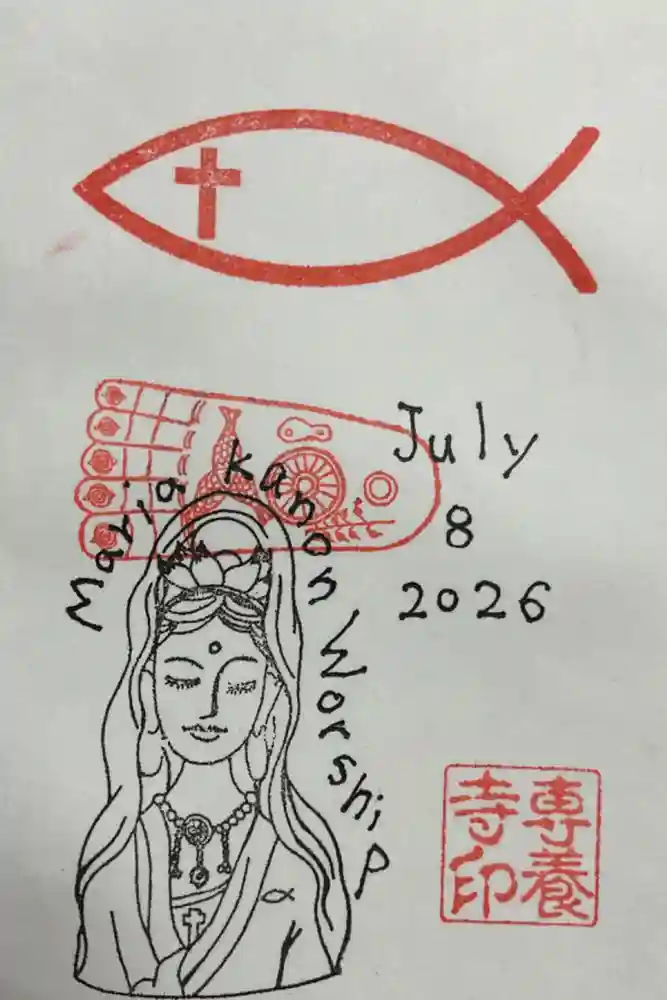 Maria kanon Worship
July
8
2026
専養
寺印